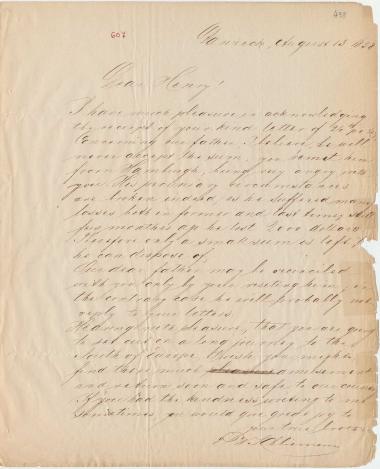 607
438
August 13, 1858
Dear Henry!
I have much pleasure in acknowledging
the receipt of your kind letter of
Concerning our father, I believe, he will
never accept the sum, you
from Hamburgh, being very angry with
you. His circumstances
are broken indeed, as he suffered many
losses both in former and last times, still
few months ago he lost 2000 dollars.
Therefore only a small sum is left,
he can dispose of.
Our dear father may be reconciled
with you only by your visiting him, in
the contrary case he will probably not
reply to your letters.
with pleasure, that you are going
to set out on a long journey to the
South of Europe. I wish, you might
find there much amusement
and return soon and safe to our
If you had the kindness writing to me
sometimes, you would give great joy to
your true brother